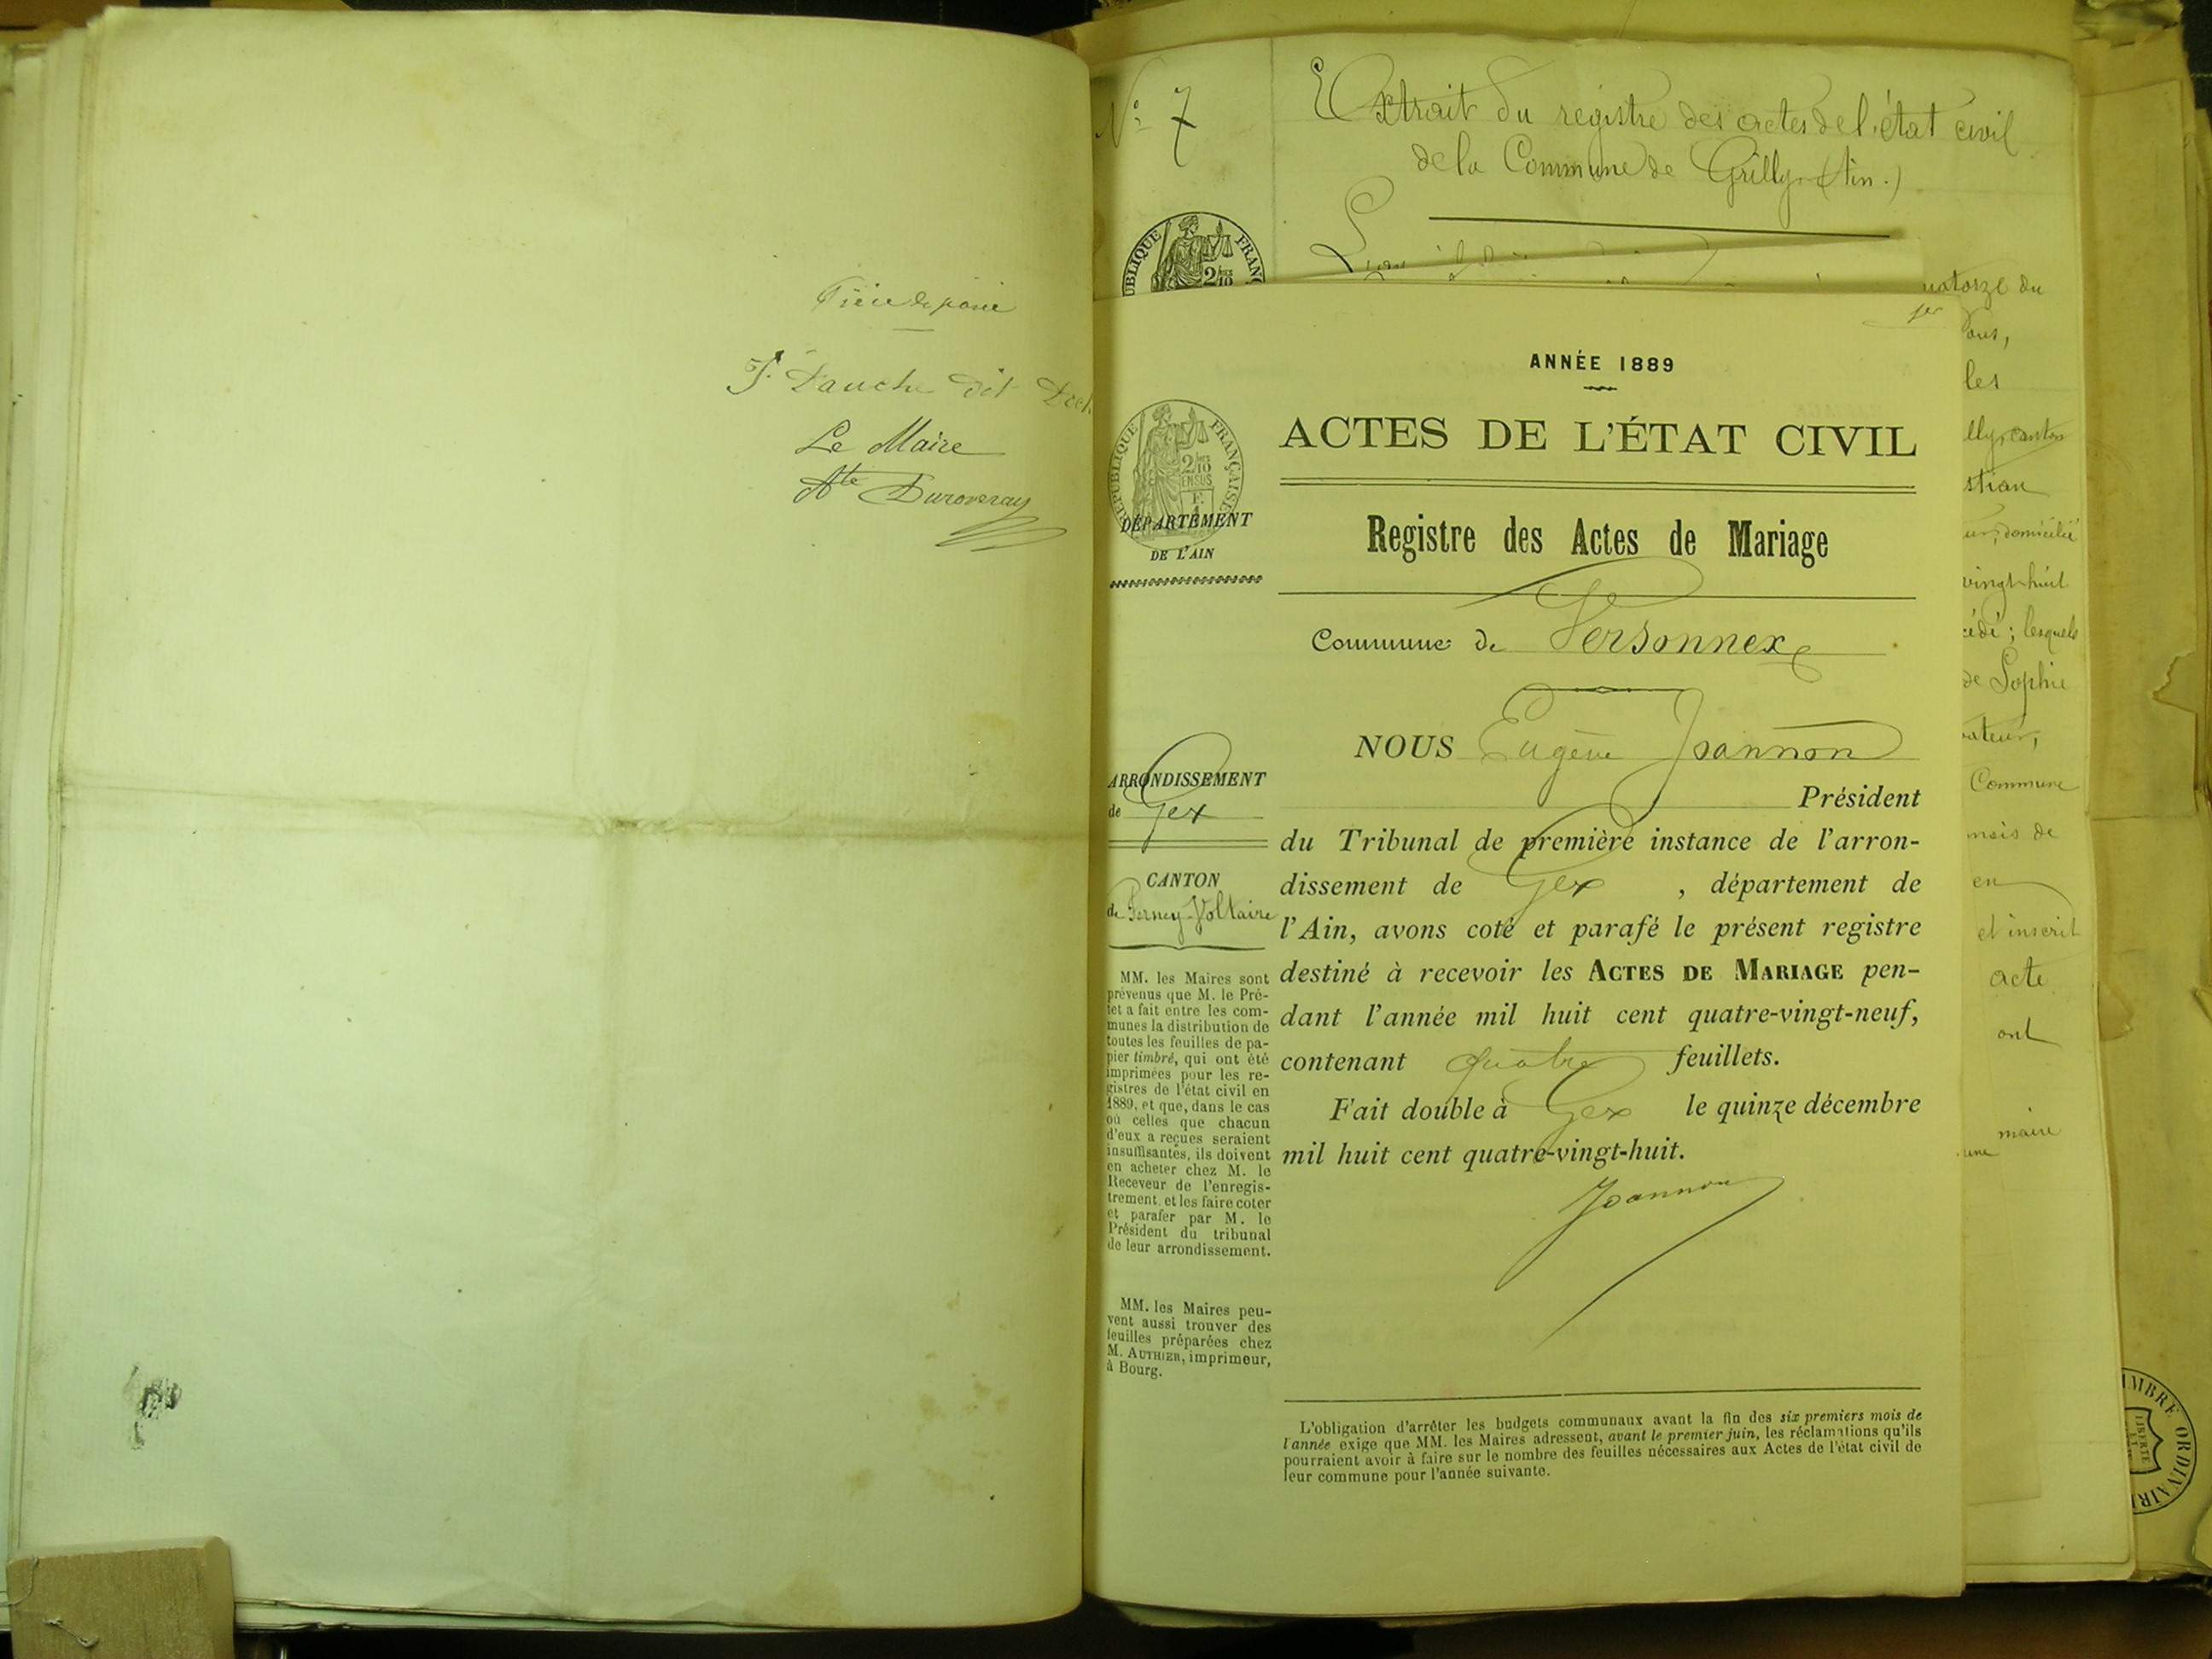 J. Dauche dit
Le Maire
Ate Duroveray
N° 7
Extrait du registre des actes de l'état civil
de la Commune de Grilly (Ain.)
RÉPUBLIQUE FRANÇAISE
2/10
natorze du
les
lly, canton
stian
ur, domicilié
vingt-huit
cédé ; lesquels
de Sophie
ateur,
Commune
mois de
en
et inscrit
acte
ont
maire
1er
ANNÉE 1889
ACTES DE L'ÉTAT CIVIL
RÉPUBLIQUE FRANÇAISE
2/10
EN SUS
DÉPARTEMENT
DE L'AIN
Registre des Actes de Mariage
Commune de Versonnex
ARRONDISSEMENT
de Gex
CANTON
de Ferney-Voltaire
NOUS Eugène Joannon
Président
du Tribunal de première instance de l'arron-
dissement de Gex , département de
l'Ain, avons coté et parafé le présent registre
destiné à recevoir les ACTES DE MARIAGE pen-
dant l'année mil huit cent quatre-vingt-neuf,
contenant quatre feuillets.
Fait double à Gex le quinze décembre
mil huit cent quatre-vingt-huit.
Joannon
MM. les Maires sont
prévenus que M. le Pré-
fet a fait entre les com-
munes la distribution de
toutes les feuilles de pa-
pier timbré, qui ont été
imprimées pour les re-
gistres de l'état civil en
1889, et que, dans le cas
où celles que chacun
d'eux a reçues seraient
insuffisantes, ils doivent
en acheter chez M. le
Receveur de l'enregis-
trement, et les faire coter
et parafer par M. le
Président du tribunal
de leur arrondissement.
MM. les Maires peu-
vent aussi trouver des
feuilles préparées chez
M. AUTHIER, imprimeur,
à Bourg.
L'obligation d'arrêter les budgets communaux avant la fin des six premiers mois de
l'année exige que MM. les Maires adressent, avant le premier juin, les réclamations qu'ils
pourraient avoir à faire sur le nombre des feuilles nécessaires aux Actes de l'état civil de
leur commune pour l'année suivante.
TIMBRE ORDINAIRE
LIBERTÉ